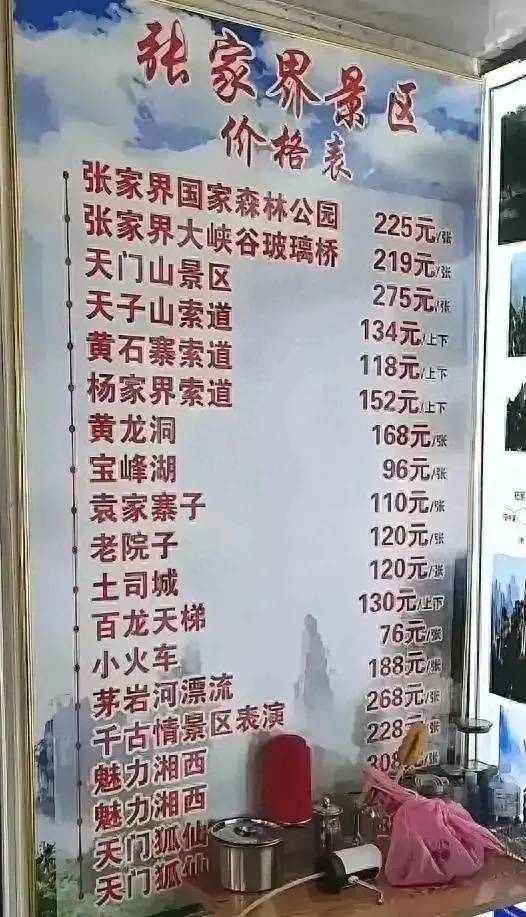 张家界景区
价格表
张家界国家森林公园 225元/张
张家界大峡谷玻璃桥 219元/张
天门山景区 275元/张
天子山索道 134元/上下
黄石寨索道 118元/上下
杨家界索道 152元/上下
黄龙洞 168元/张
宝峰湖 96元/张
袁家寨子 110元/张
老院子 120元/张
土司城 120元/张
百龙天梯 130元/上下
小火车 76元/张
茅岩河漂流 188元/张
千古情景区表演 268元/张
魅力湘西 228元
魅力湘西
天门狐仙
天门狐仙